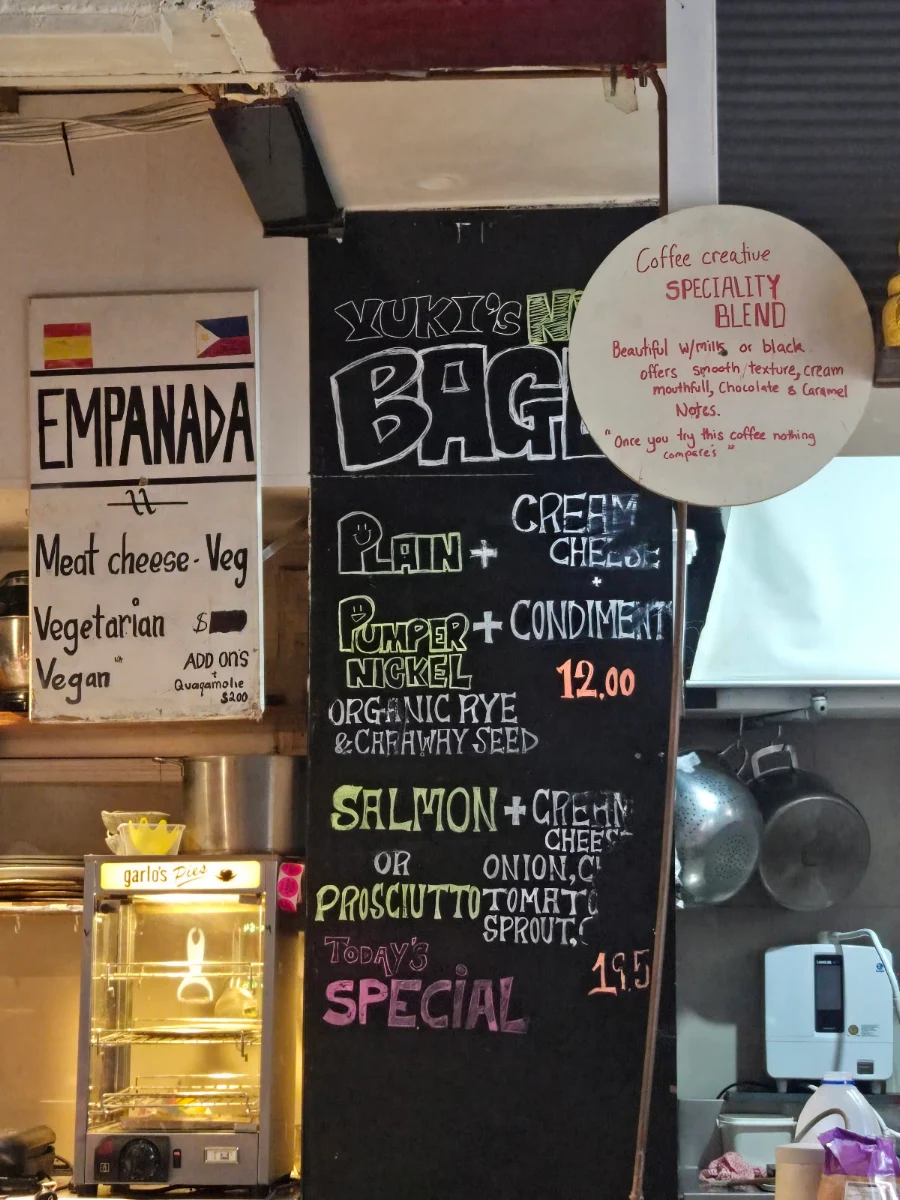 EMPANADA
Meat cheese - Veg
Vegetarian $
Vegan
ADD ON'S
+
Quagamolie
$2.00
YUKI'S
PLAIN + CREAM
CHEESE
+
PUMPER + CONDIMENT
NICKEL
12.00
ORGANIC RYE
& CARAWAY SEED
SALMON + CREAM
CHEESE
OR ONION,
PROSCIUTTO TOMATO
SPROUT,
TODAY'S
SPECIAL
19.5
Coffee creative
SPECIALITY
BLEND
Beautiful w/milk or black
offers smooth/texture, cream
mouthfull, Chocolate & Caramel
Notes.
"Once you try this coffee nothing
compares"
garlo's Pies